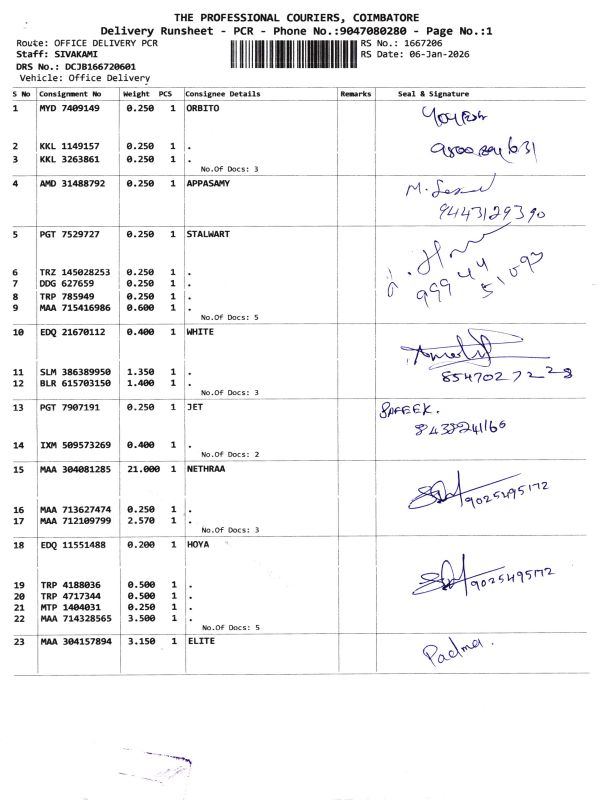 THE PROFESSIONAL COURIERS, COIMBATORE
Delivery Runsheet - PCR - Phone No.:9047080280 - Page No.:1
Route: OFFICE DELIVERY PCR
RS No.: 1667206
Staff: SIVAKAMI
RS Date: 06-Jan-2026
DRS No.: DCJB166720601
Vehicle: Office Delivery
S No Consignment No Weight PCS Consignee Details Remarks Seal & Signature
1 MYD 7409149 0.250 1 ORBITO
2 KKL 1149157 0.250 1 .
3 KKL 3263861 0.250 1 .
No.Of Docs: 3
4 AMD 31488792 0.250 1 APPASAMY
9443129390
5 PGT 7529727 0.250 1 STALWART
99944 51093
6 TRZ 145028253 0.250 1 .
7 DDG 627659 0.250 1 .
8 TRP 785949 0.250 1 .
9 MAA 715416986 0.600 1 .
No.Of Docs: 5
10 EDQ 21670112 0.400 1 WHITE
8547027228
11 SLM 386389950 1.350 1 .
12 BLR 615703150 1.400 1 .
No.Of Docs: 3
13 PGT 7907191 0.250 1 JET SAFEEK.
8438241160
14 IXM 509573269 0.400 1 .
No.Of Docs: 2
15 MAA 304081285 21.000 1 NETHRAA
9025495172
16 MAA 713627474 0.250 1 .
17 MAA 712109799 2.570 1 .
No.Of Docs: 3
18 EDQ 11551488 0.200 1 HOYA
9025495172
19 TRP 4188036 0.500 1 .
20 TRP 4717344 0.500 1 .
21 MTP 1404031 0.250 1 .
22 MAA 714328565 3.500 1 .
No.Of Docs: 5
23 MAA 304157894 3.150 1 ELITE Padma.